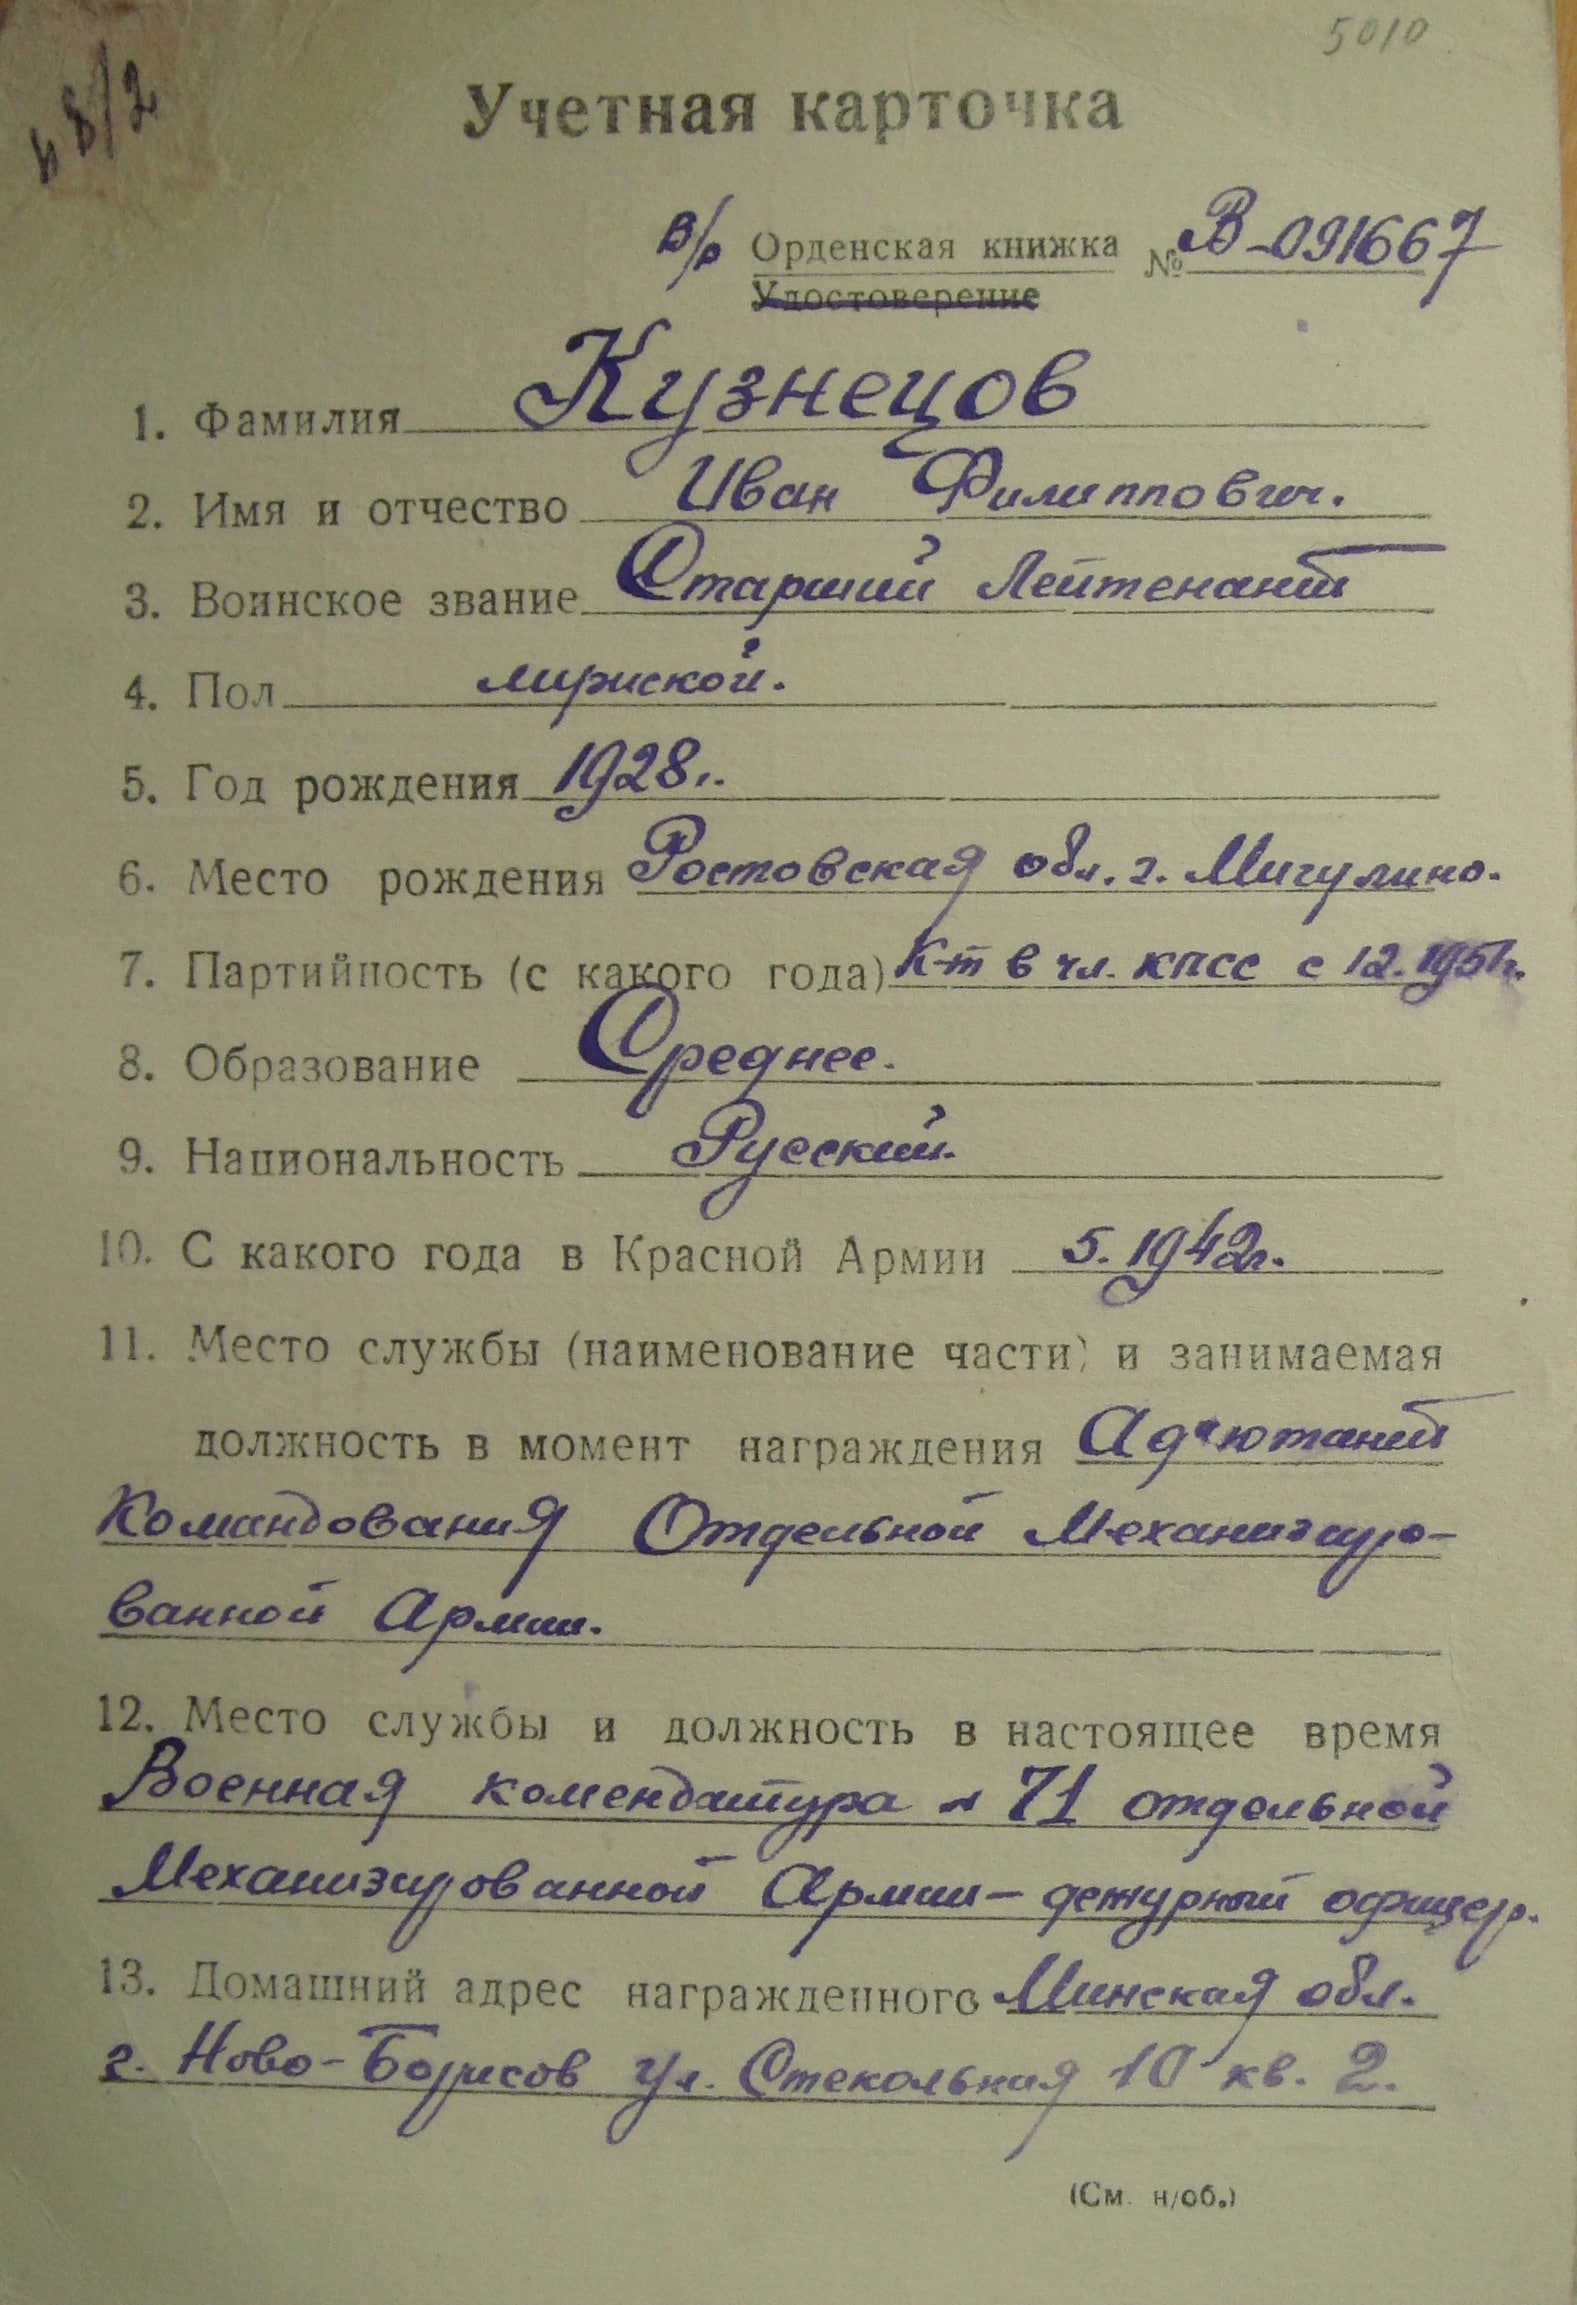 5010
48/2
Учетная карточка
в/р Орденская книжка № В-091667
Удостоверение
1. Фамилия Кузнецов
2. Имя и отчество Иван Филиппович.
3. Воинское звание Старший Лейтенант
4. Пол мужской.
5. Год рождения 1928г.
6. Место рождения Ростовская обл. г. Мигулино.
7. Партийность (с какого года) К-т в чл. КПСС с 12.1951г.
8. Образование Среднее.
9. Национальность Русский.
10. С какого года в Красной Армии 5.1942г.
11. Место службы (наименование части) и занимаемая
должность в момент награждения Ад'ютант
Командования Отдельной Механизиро-
ванной Армии.
12. Место службы и должность в настоящее время
Военная комендатура 71 отдельной
Механизированной Армии - дежурный офицер.
13. Домашний адрес награжденного Минская обл.
г. Ново-Борисов ул. Стекольная 10 кв. 2.
(См. н/об.)